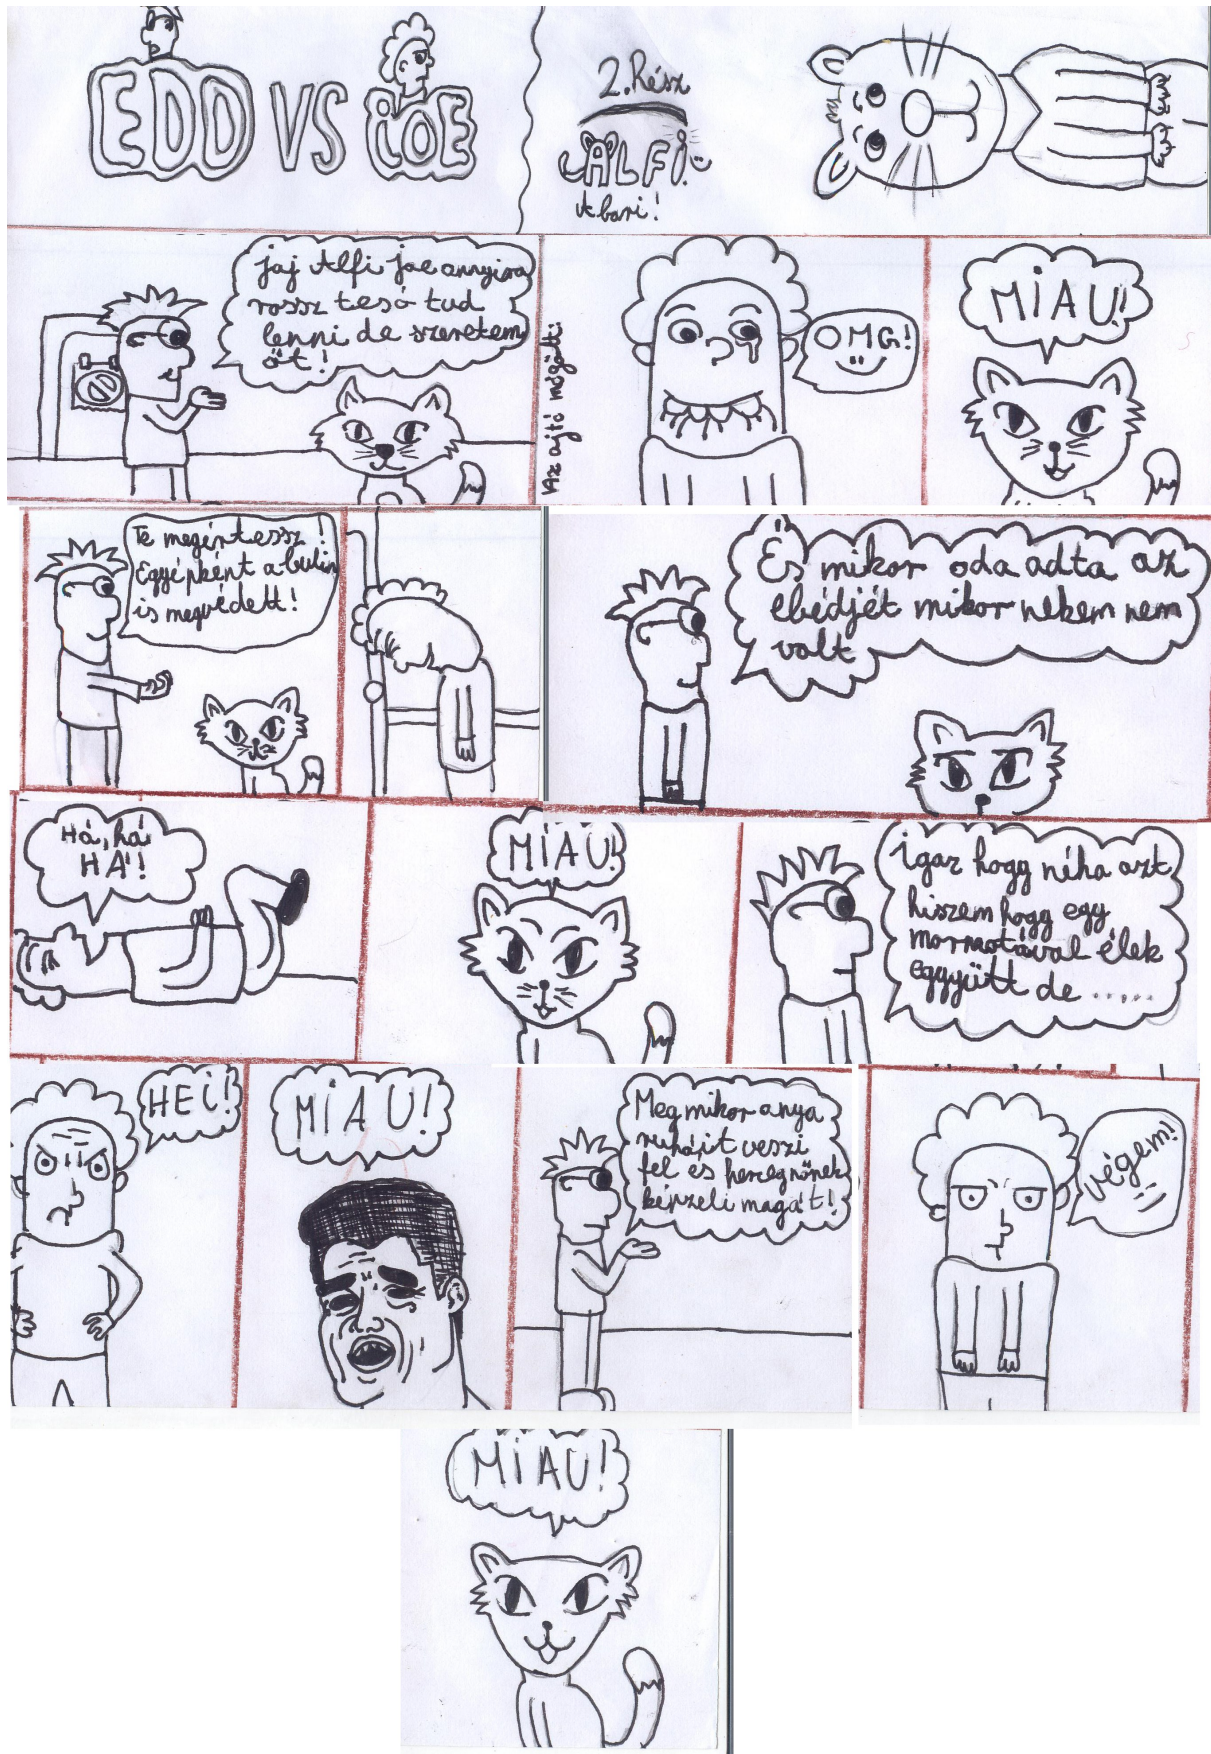 EDD VS iOE
2. Rész
ALFi
A bari!
jaj Alfi joe annyira
rossz tesó tud
lenni de szeretem
őt!
Az ajtó mögött:
OMG!
MiAU!
Te megértessz!
Egyépként a bulin
is megvédett!
És mikor oda adta az
ebédjét mikor nekem nem
volt
Há, há
HA!
MiAU!
igaz hogy néha azt
hiszem hogy egy
mormotával élek
eggyütt de .....
HEi!
MiAU!
Meg mikor anya
ruháit veszi
fel és hercegnőnek
képzeli magát!
végem!
MiAU!